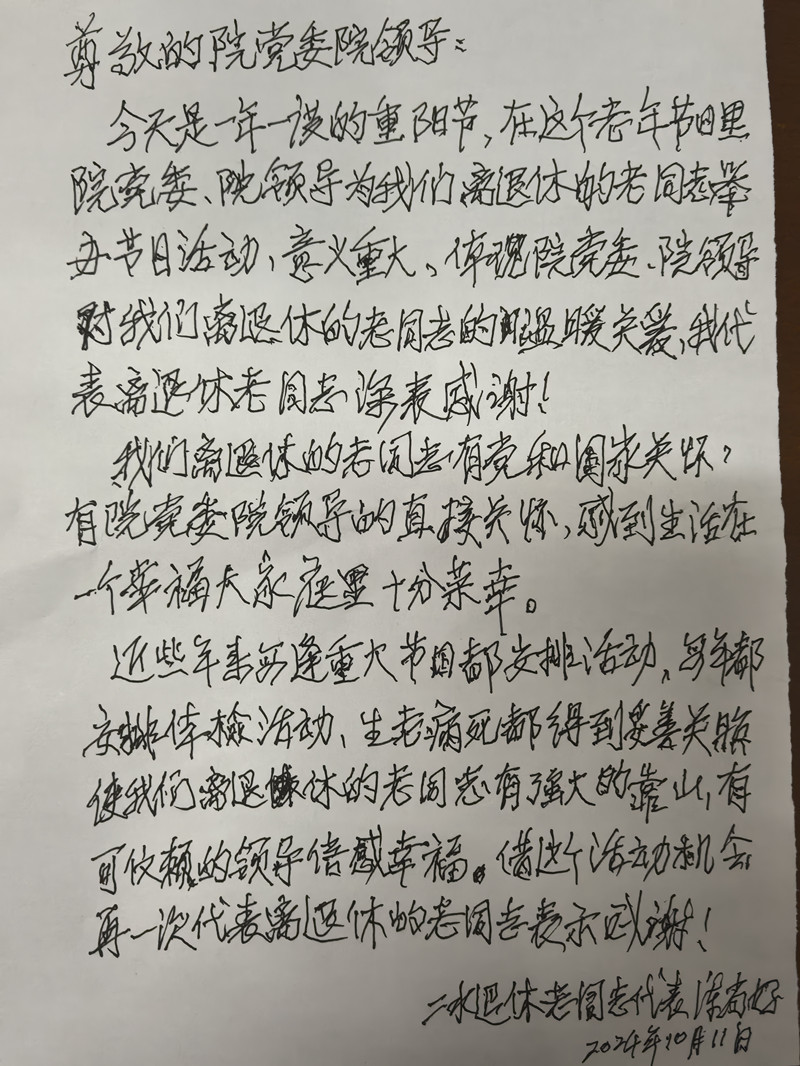 尊敬的院党委院领导:
今天是一年一度的重阳节,在这个老年节日里
院党委、院领导为我们离退休的老同志举
办节日活动、意义重大、体现院党委、院领导
对我们离退休的老同志的温暖关爱,我代
表离退休老同志深表感谢!
我们离退休的老同志有党和国家关怀,
有院党委院领导的直接关怀,感到生活在
一个幸福大家庭里十分荣幸。
近些年来每逢重大节日都安排活动、每年都
安排体检活动、生老病死都得到妥善关照
使我们离退休的老同志有强大的靠山,有
可依赖的领导倍感幸福。借这个活动机会
再一次代表离退休的老同志表示感谢!
二水退休老同志代表
2024年10月11日